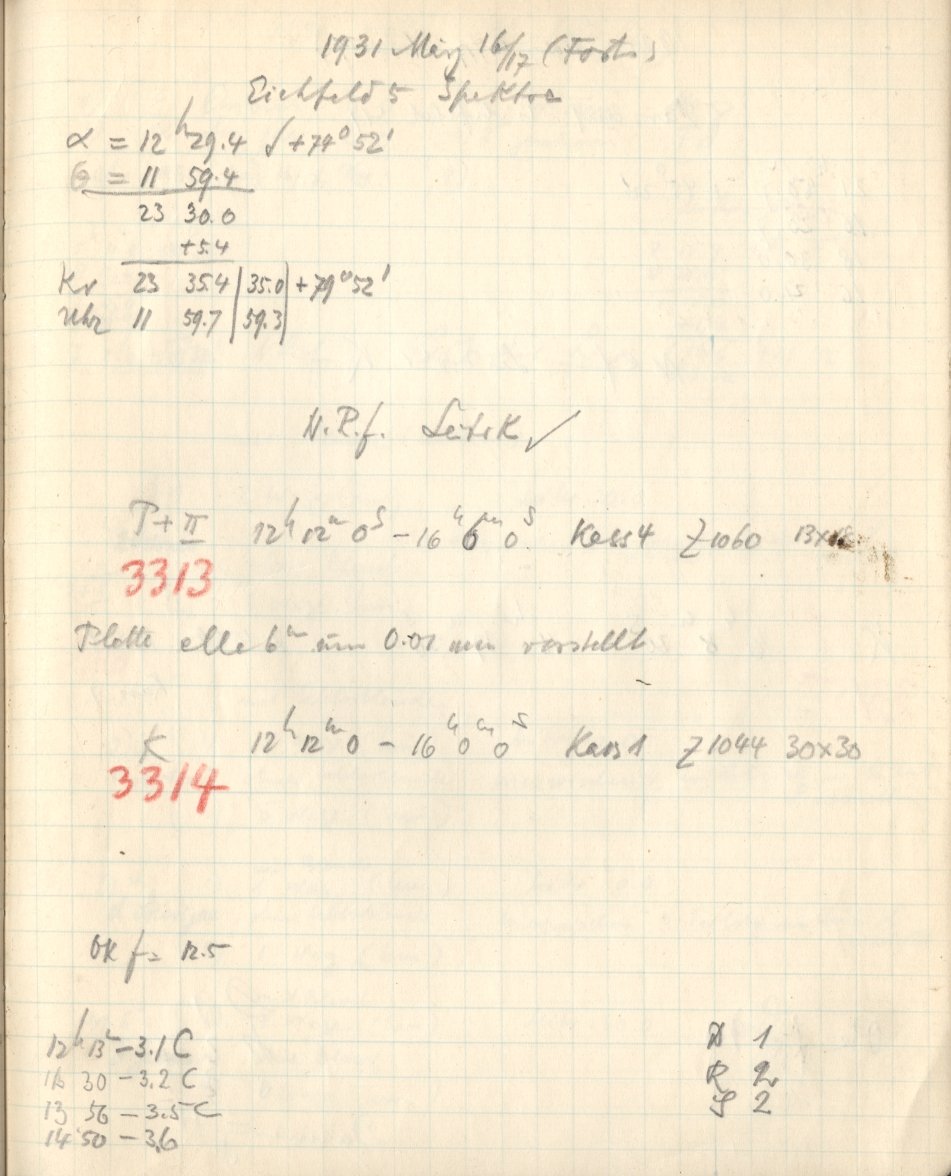 1931 März 16/17 (Forts.)
Eichfeld 5 Spektra
α = 12ʰ 29.4 δ +79° 52'
Θ = 11 59.4
23 30.0
+5.4
Kr 23 35.4 | 35.0 | +79° 52'
Uhr 11 59.7 | 59.3 |
N.P.f. ✓
P + π 12ʰ 12ᵐ 0ˢ – 16ʰ 6ᵐ 0ˢ Kass 4 Z 1060
3313
Platte alle 6ᵐ um 0.01 mm verstellt
K 12ʰ 12ᵐ 0 – 16ʰ 0ᵐ 0ˢ Kass 1 Z 1044 30x30
3314
OK f = 12.5
12ʰ 13ᵐ – 3.1 C
30 – 3.2 C
13 56 – 3.5 C
14 50 – 3.6
D 1
R 2
S 2